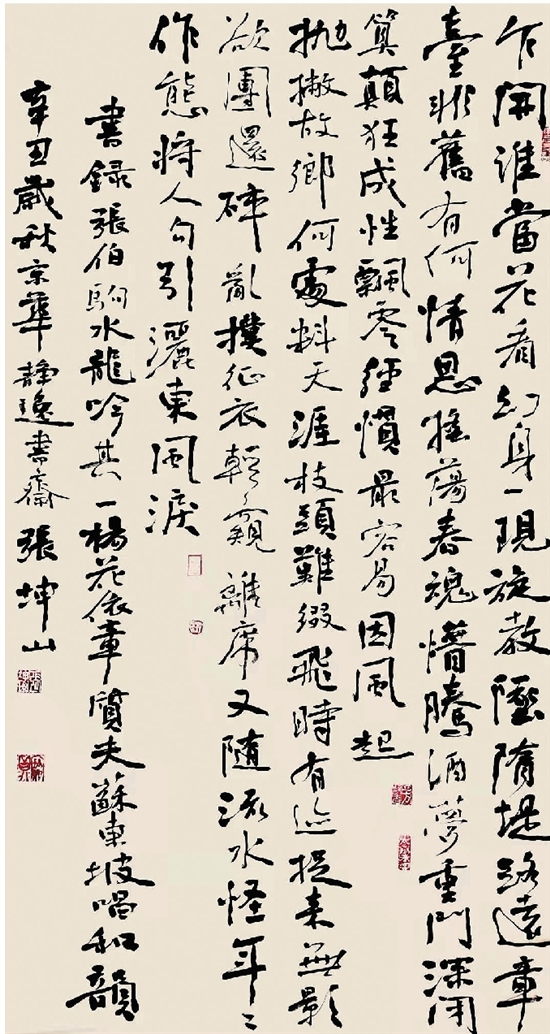 乍開誰當花看幻身一現旋教墜隋堤路遠章
臺非舊有何情思搖蕩春魂懵騰酒夢重門深閉
算顛狂成性飄零經慣最容易因風起
拋撇故鄉何處料天涯枝頭難綴飛時有迹捉來無影
欲團還碎亂撲征衣輕離席又隨流水怪年〻
作態將人勾引灑東風淚
書錄張伯駒水龍吟其一楊花依章質夫蘇東坡唱和韻
辛丑歲秋京華靜逸書齋張坤山